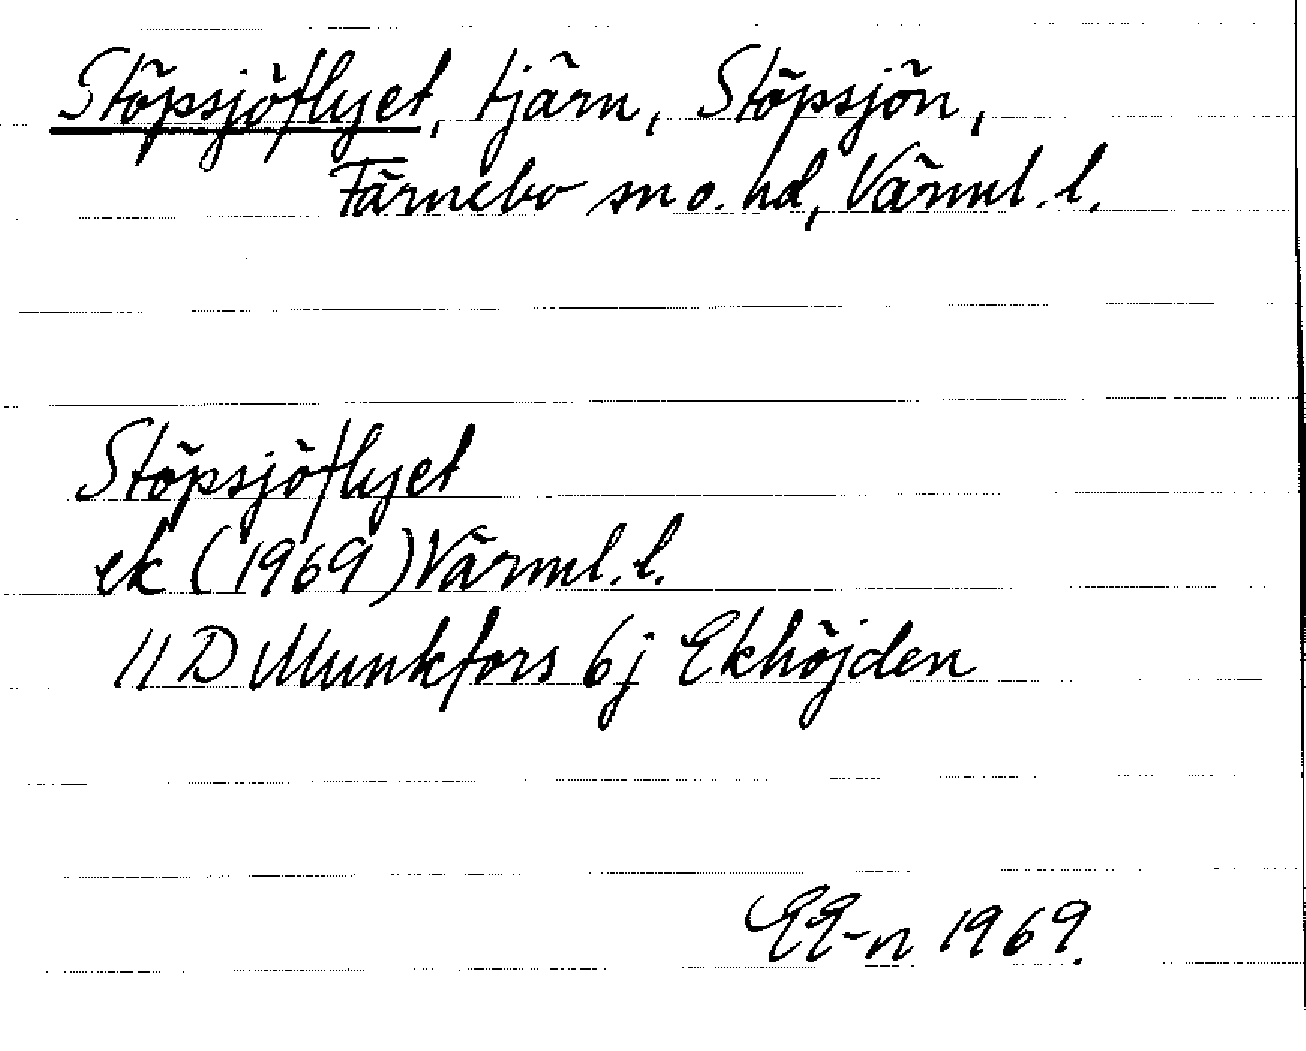 Stöpsjöflyet, tjärn, Stöpsjön,
Färnebo sn o. hd, Värml. l.
Stöpsjöflyet
ek (1969) Värml. l.
11 D Munkfors 6j Ekhöjden
1969.